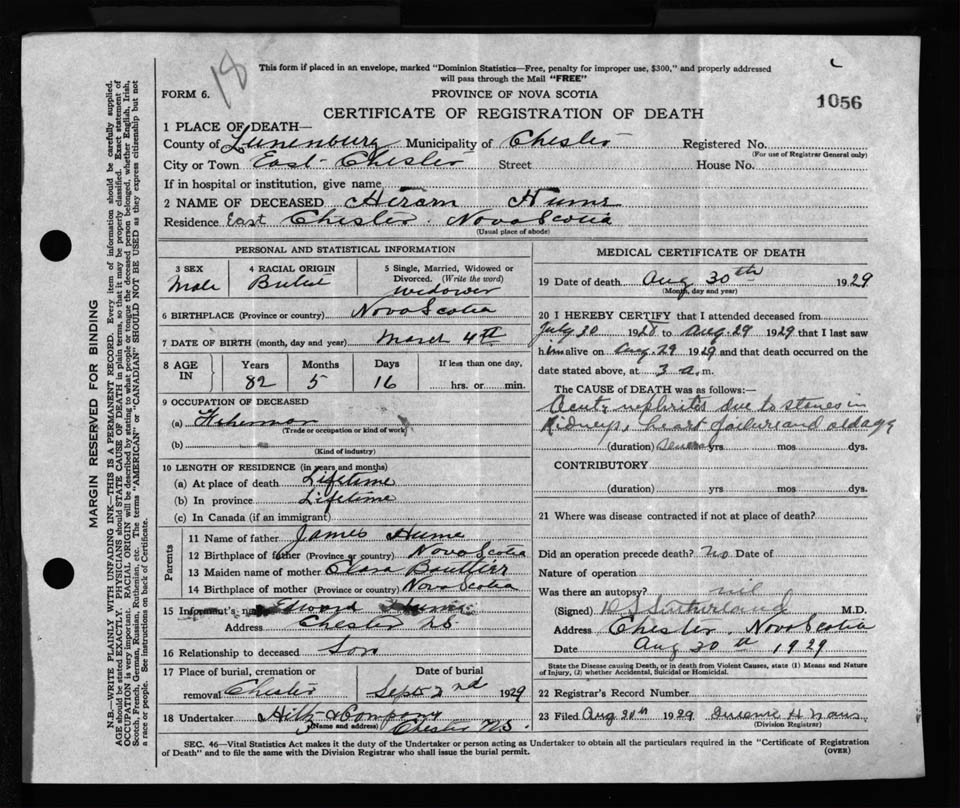 18
This form if placed in an envelope, marked "Dominion Statistics—Free, penalty for improper use, $300," and properly addressed
will pass through the Mail "FREE"
FORM 6.
PROVINCE OF NOVA SCOTIA
1056
CERTIFICATE OF REGISTRATION OF DEATH
1 PLACE OF DEATH—
County of Lunenburg Municipality of Chester Registered No.
(For use of Registrar General only)
City or Town East Chester Street House No.
If in hospital or institution, give name
2 NAME OF DECEASED Hiram Hume
Residence East Chester Nova Scotia
(Usual place of abode)
PERSONAL AND STATISTICAL INFORMATION
3 SEX
Male
4 RACIAL ORIGIN
5 Single, Married, Widowed or
Divorced. (Write the word)
Widower
6 BIRTHPLACE (Province or country) Nova Scotia
7 DATE OF BIRTH (month, day and year) March 4th
8 AGE
IN
Years Months Days If less than one day,
82 5 16 hrs. or min.
9 OCCUPATION OF DECEASED
(a) Fisherman
(Trade or occupation or kind of work)
(b)
(Kind of industry)
10 LENGTH OF RESIDENCE (in years and months)
(a) At place of death Lifetime
(b) In province Lifetime
(c) In Canada (if an immigrant)
Parents
11 Name of father James Hume
12 Birthplace of father (Province or country) Nova Scotia
13 Maiden name of mother Clara
14 Birthplace of mother (Province or country) Nova Scotia
15 Informant's name Edward Hume
Address Chester NS
16 Relationship to deceased Son
17 Place of burial, cremation or Date of burial
removal Chester Sept 2nd 1929
18 Undertaker Hiltz & Company
(Name and address) Chester N.S.
MEDICAL CERTIFICATE OF DEATH
19 Date of death Aug 30th 1929
(Month, day and year)
20 I HEREBY CERTIFY that I attended deceased from
July 30 1928 to Aug 29 1929 that I last saw
him alive on Aug. 29 1929 and that death occurred on the
date stated above, at 3 a.m.
The CAUSE of DEATH was as follows:—
Acute nephrites due to stones in
Kidneys, heart failure and old age
(duration) Several yrs mos dys.
CONTRIBUTORY
(duration) yrs mos dys.
21 Where was disease contracted if not at place of death?
Did an operation precede death? No Date of
Nature of operation
Was there an autopsy? nil
(Signed) D S Sutherland M.D.
Address Chester, Nova Scotia
Date Aug 30th 1929
State the Disease causing Death, or in death from Violent Causes, state (1) Means and Nature
of Injury, (2) whether Accidental, Suicidal or Homicidal.
22 Registrar's Record Number
23 Filed Aug 30th 1929
(Division Registrar)
SEC. 46—Vital Statistics Act makes it the duty of the Undertaker or person acting as Undertaker to obtain all the particulars required in the "Certificate of Registration
of Death" and to file the same with the Division Registrar who shall issue the burial permit.
(OVER)
MARGIN RESERVED FOR BINDING
N.B.—WRITE PLAINLY WITH UNFADING INK—THIS IS A PERMANENT RECORD. Every item of information should be carefully supplied.
AGE should be stated EXACTLY. PHYSICIANS should STATE CAUSE OF DEATH in plain terms, so that it may be properly classified. Exact statement of
OCCUPATION is very important. RACIAL ORIGIN will be described by stating to what people or tongue the deceased person belonged, whether English, Irish,
Scotch, French, German, Russian, Ruthenian, etc. The terms "AMERICAN" or "CANADIAN" SHOULD NOT BE USED as they express citizenship but not
a race or people. See instructions on back of Certificate.